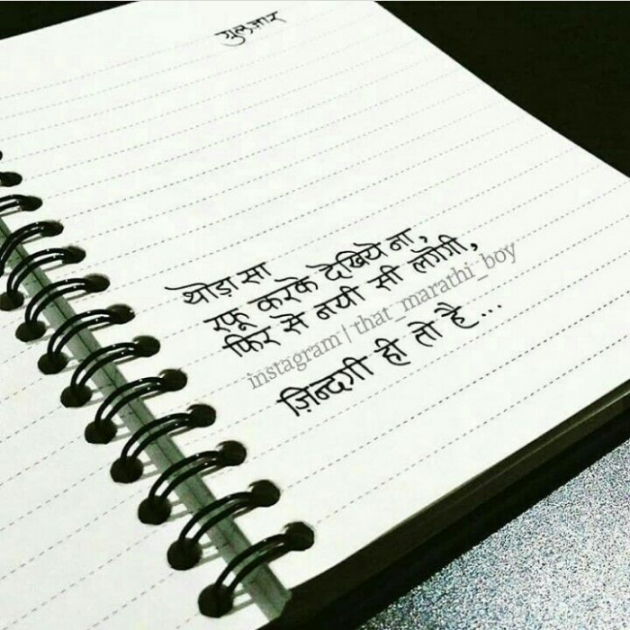 गुलज़ार
थोड़ा सा
रफू करके देखिये ना,
फिर से नयी सी लगेगी,
instagram/that_marathi_boy
ज़िन्दगी ही तो है...